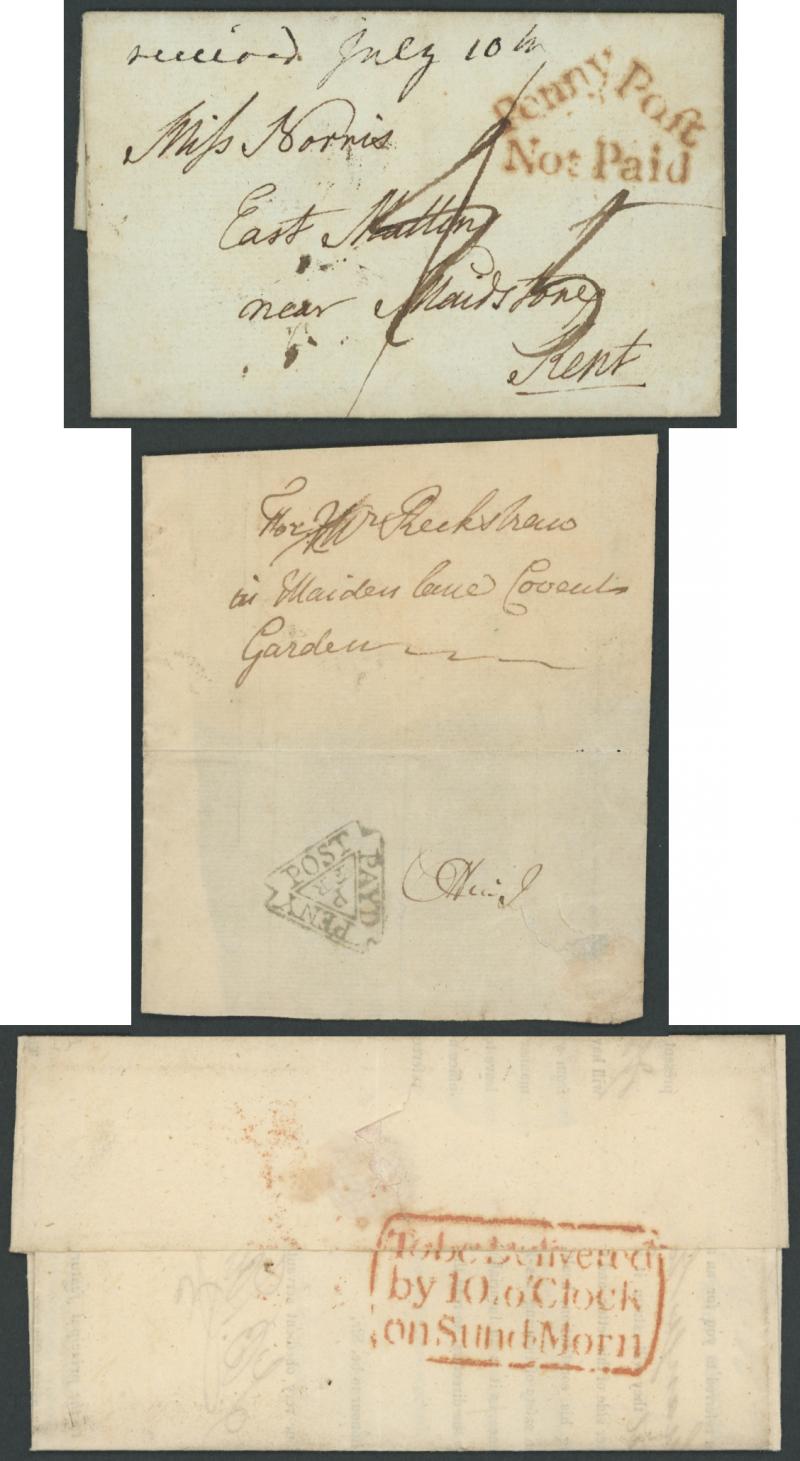 received July 10th
Penny Post
Not Paid
Miss Norris
East Malling
near Maidstone
Kent
For Mr Reckstraw
in Maiden lane Covent
Garden
PENY POST PAYD
To be Delivered
by 10. o'Clock
on Sund. Morn